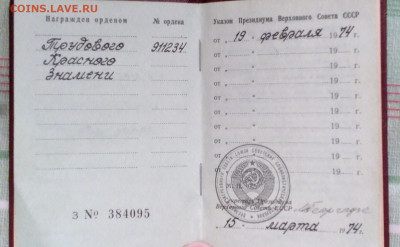 COINS.SU
WWW.COINS.LAVE.RU
Награжден орденом
№ ордена
Трудового 911234
Красного
Знамени
З № 384095
Указом Президиума Верховного Совета СССР
от 19 февраля 1974 г.
от " 19 г.
от " 19 г.
от " 19 г.
от " 19 г.
от " 19 г.
от " 19 г.
М.П.
Секретарь Президиума
Верховного Совета СССР
15 марта 1974 г.